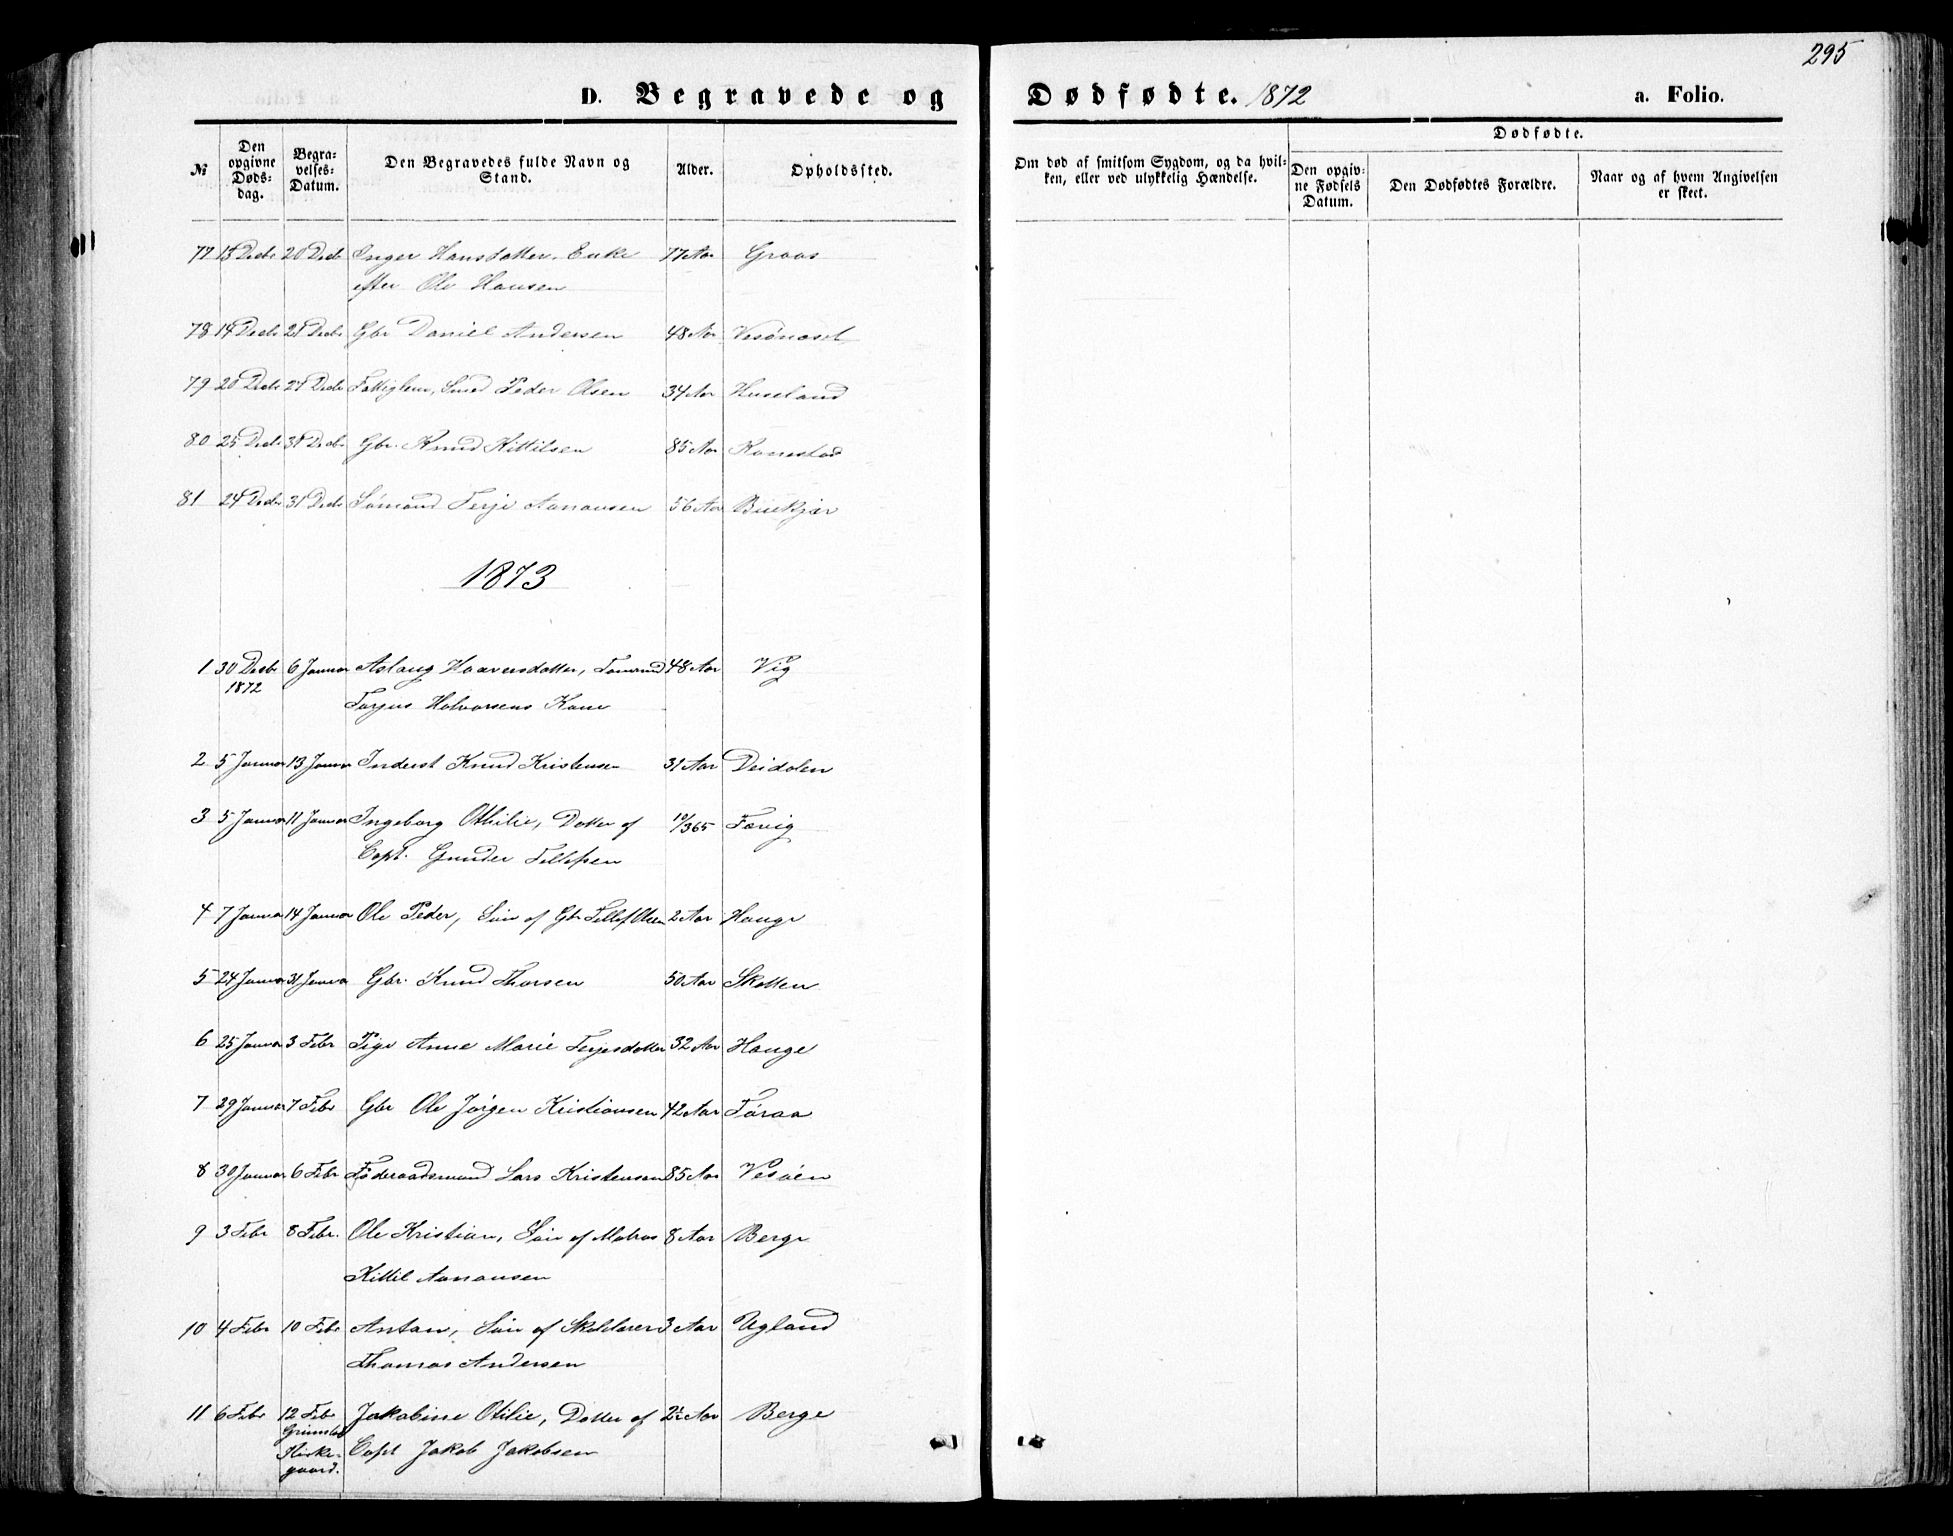 295
D. Begravede og Dødfødte. 1872 a. Folio.
№ Den opgivne Døds-dag. Begra-velses-Datum. Den Begravedes fulde Navn og Stand. Alder. Opholdssted. Om død af smitsom Sygdom, og da hvil-ken, eller ved ulykkelig Hændelse. Dødfødte. Den opgiv-ne Fødsels Datum. Den Dødfødtes Forældre. Naar og af hvem Angivelsen er skeet.
77 18 Decbr 20 Decbr Inger Hansdatter, Enke 77 Aar Groos
efter Ole Hansen
78 14 Decbr 21 Decbr Gbr Daniel Andersen 48 Aar
79 20 Decbr 27 Decbr Fattiglem, Smed Peder Olsen 34 Aar Huseland
80 25 Decbr 31 Decbr Gbr. Knud Kittilsen 85 Aar Konestad
81 24 Decbr 31 Decbr Sømand Terje Aanonsen 56 Aar Biekjær
1873
1 30 Decbr 6 Januar Aslaug Haaversdatter, Tømmermd 48 Aar Vig
1872 Torjus Halvorsens Kone
2 5 Januar 13 Januar Inderst Knud Kristensen 31 Aar Deidalen
3 5 Januar 11 Januar Ingeborg Othilie, Datter af 10/365 Fævig
Capt. Gunder Tellefsen
4 7 Januar 14 Januar Ole Peder, Søn af Gbr Tellef Olsen 2 Aar Hauge
5 24 Januar 31 Januar Gbr. Knud Thorsen 50 Aar Skatten
6 25 Januar 3 Febr Pige Anne Marie Terjesdatter 32 Aar Hauge
7 29 Januar 7 Febr Gbr Ole Jørgen Kristiansen 42 Aar Føraa
8 30 Januar 6 Febr Føderaadsmand Lars Kristensen 85 Aar Vesøen
9 3 Febr 8 Febr. Ole Kristian, Søn af Matros 8 Aar Berge
Kittil Aanonsen
10 4 Febr 10 Febr Antan, Søn af Skoelærer 3 Aar Ugland
Thomas Andersen
11 6 Febr 12 Febr Jakobine Otilie, Datter af 2½ Aar Berge
Grimstad
Kirke- Capt Jakob Jakobsen
gaard.